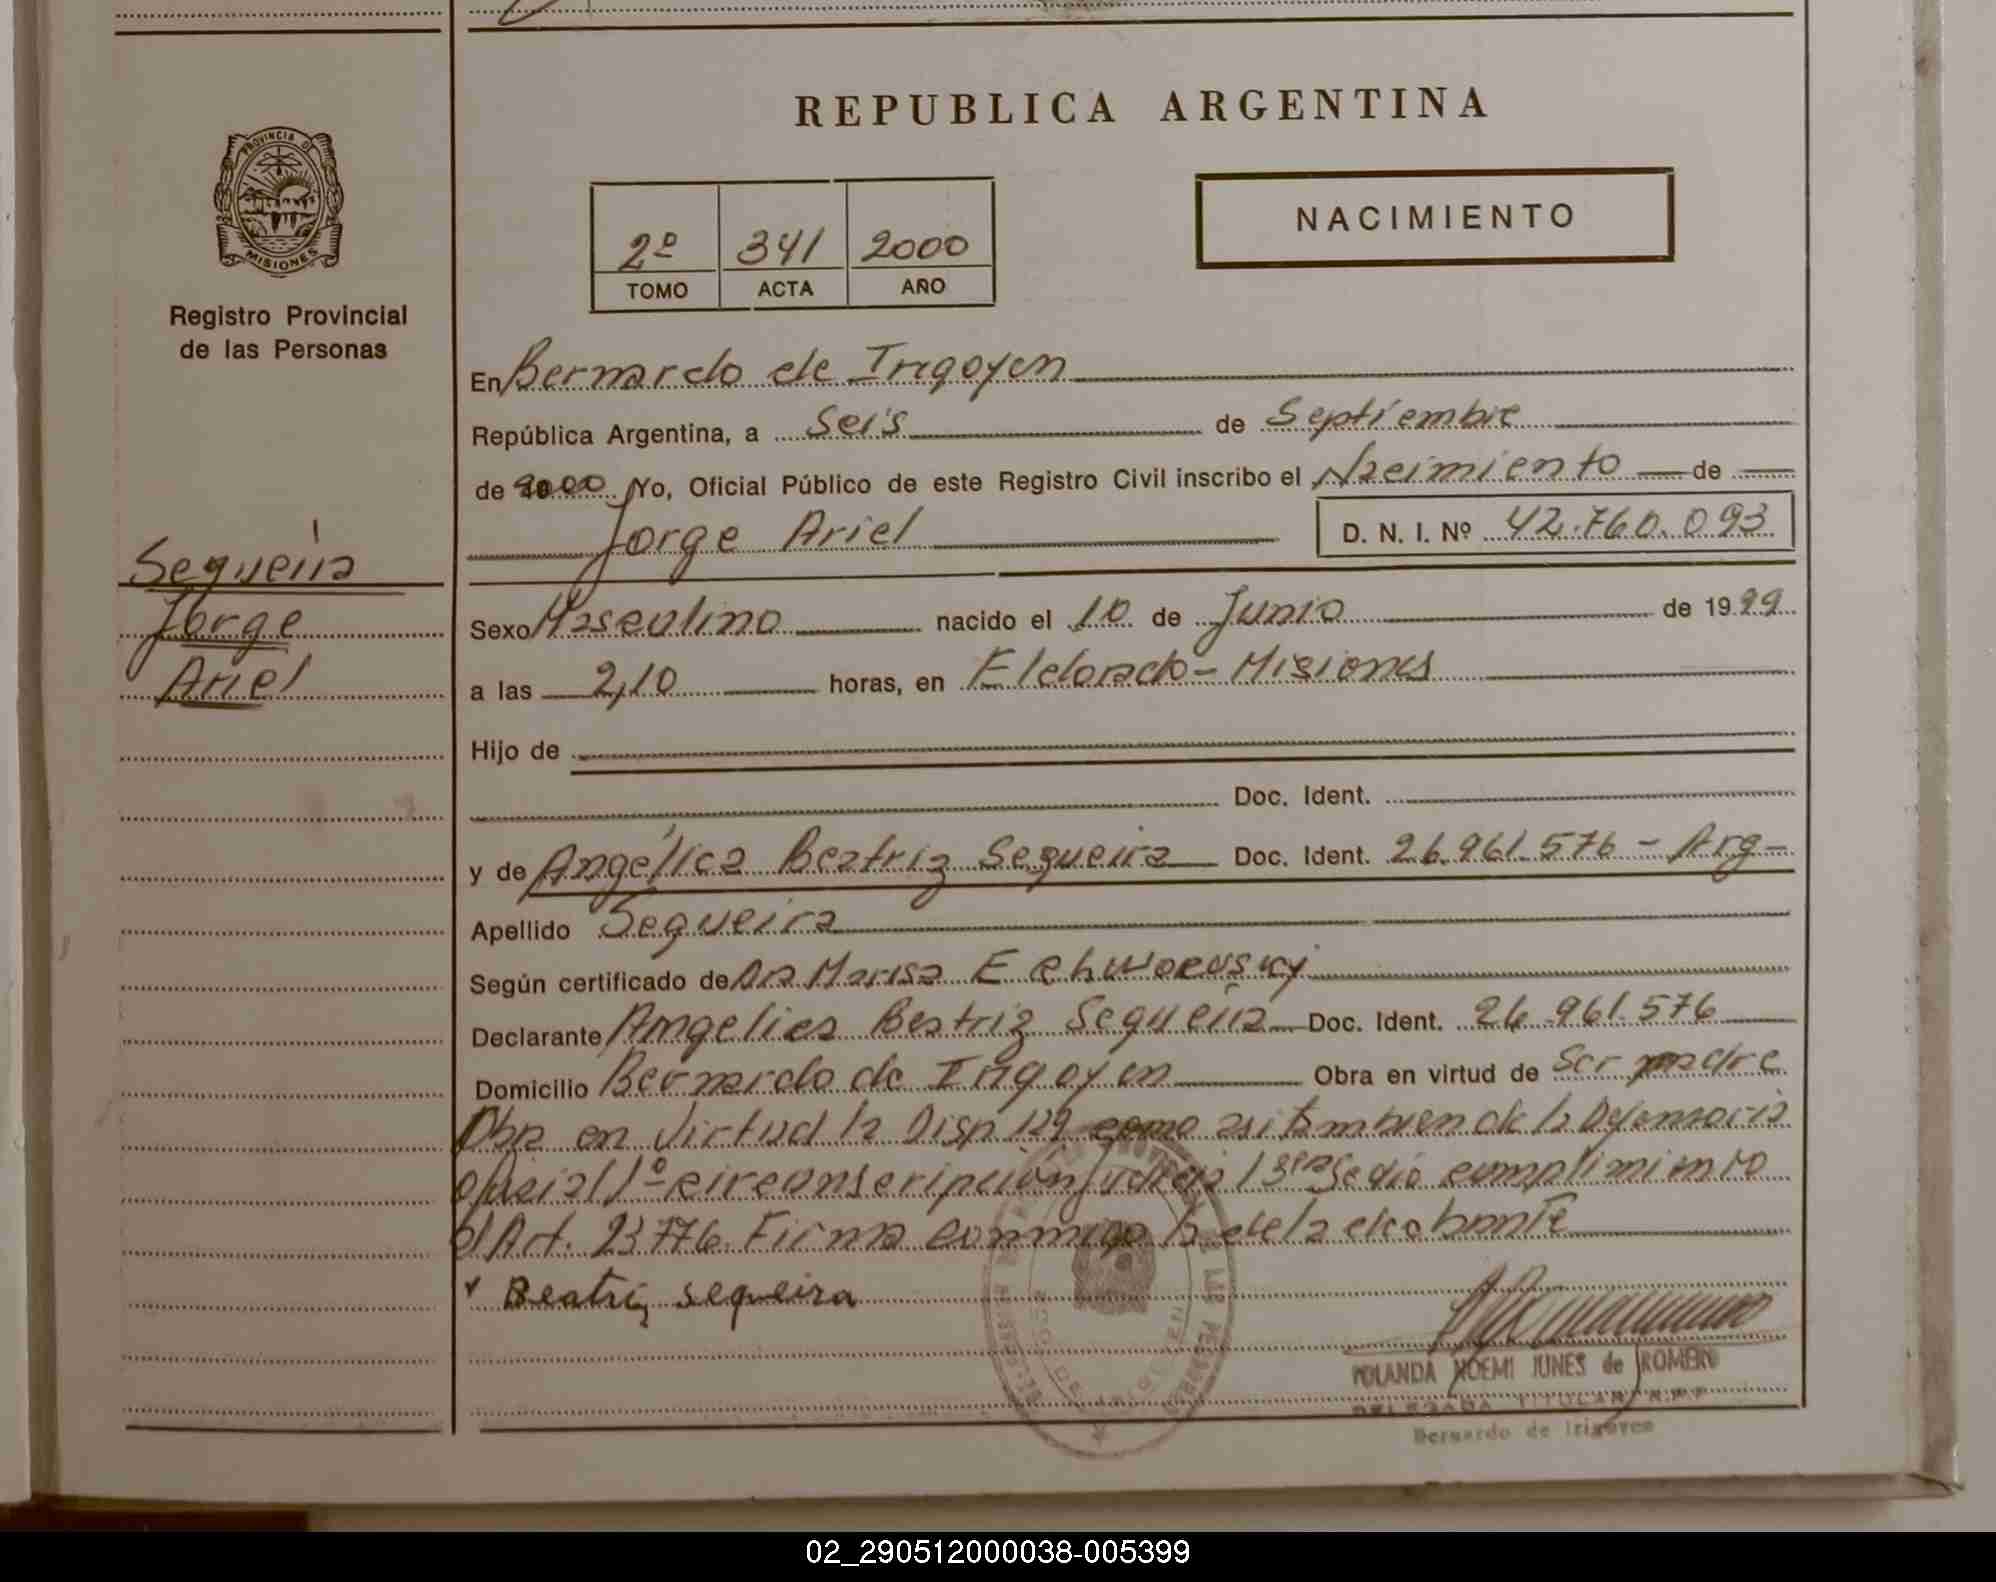 REPUBLICA ARGENTINA
PROVINCIA D
MISIONES
Registro Provincial
de las Personas
NACIMIENTO
2º 341 2000
TOMO ACTA AÑO
En Bernardo de Irigoyen
República Argentina, a Seis de Septiembre
de 2000 Yo, Oficial Público de este Registro Civil inscribo el Nacimiento de
Jorge Ariel D. N. I. Nº 42.760.093
Sequeira
Jorge
Ariel
Sexo Masculino nacido el 10 de Junio de 1999
a las 2,10 horas, en Eldorado - Misiones
Hijo de
Doc. Ident.
y de Angélica Beatriz Sequeira Doc. Ident. 26.961.576 - Arg -
Apellido Sequeira
Según certificado de Dra Marisa E
Declarante Angelica Beatriz Sequeira Doc. Ident. 26.961.576
Domicilio Bernardo de Irigoyen Obra en virtud de Ser madre
Obra en Virtud la Disp 129 como asi tambien de la Defensoria
oficial 1º circunscripción Judicial 3ra cumplimiento
Art. 23776. Firma conmigo la de la
Beatriz sequeira
YOLANDA NOEMI JUNES de ROMERO
DELEGADA TITULAR R.P.P
Bernardo de Irigoyen
02_290512000038-005399